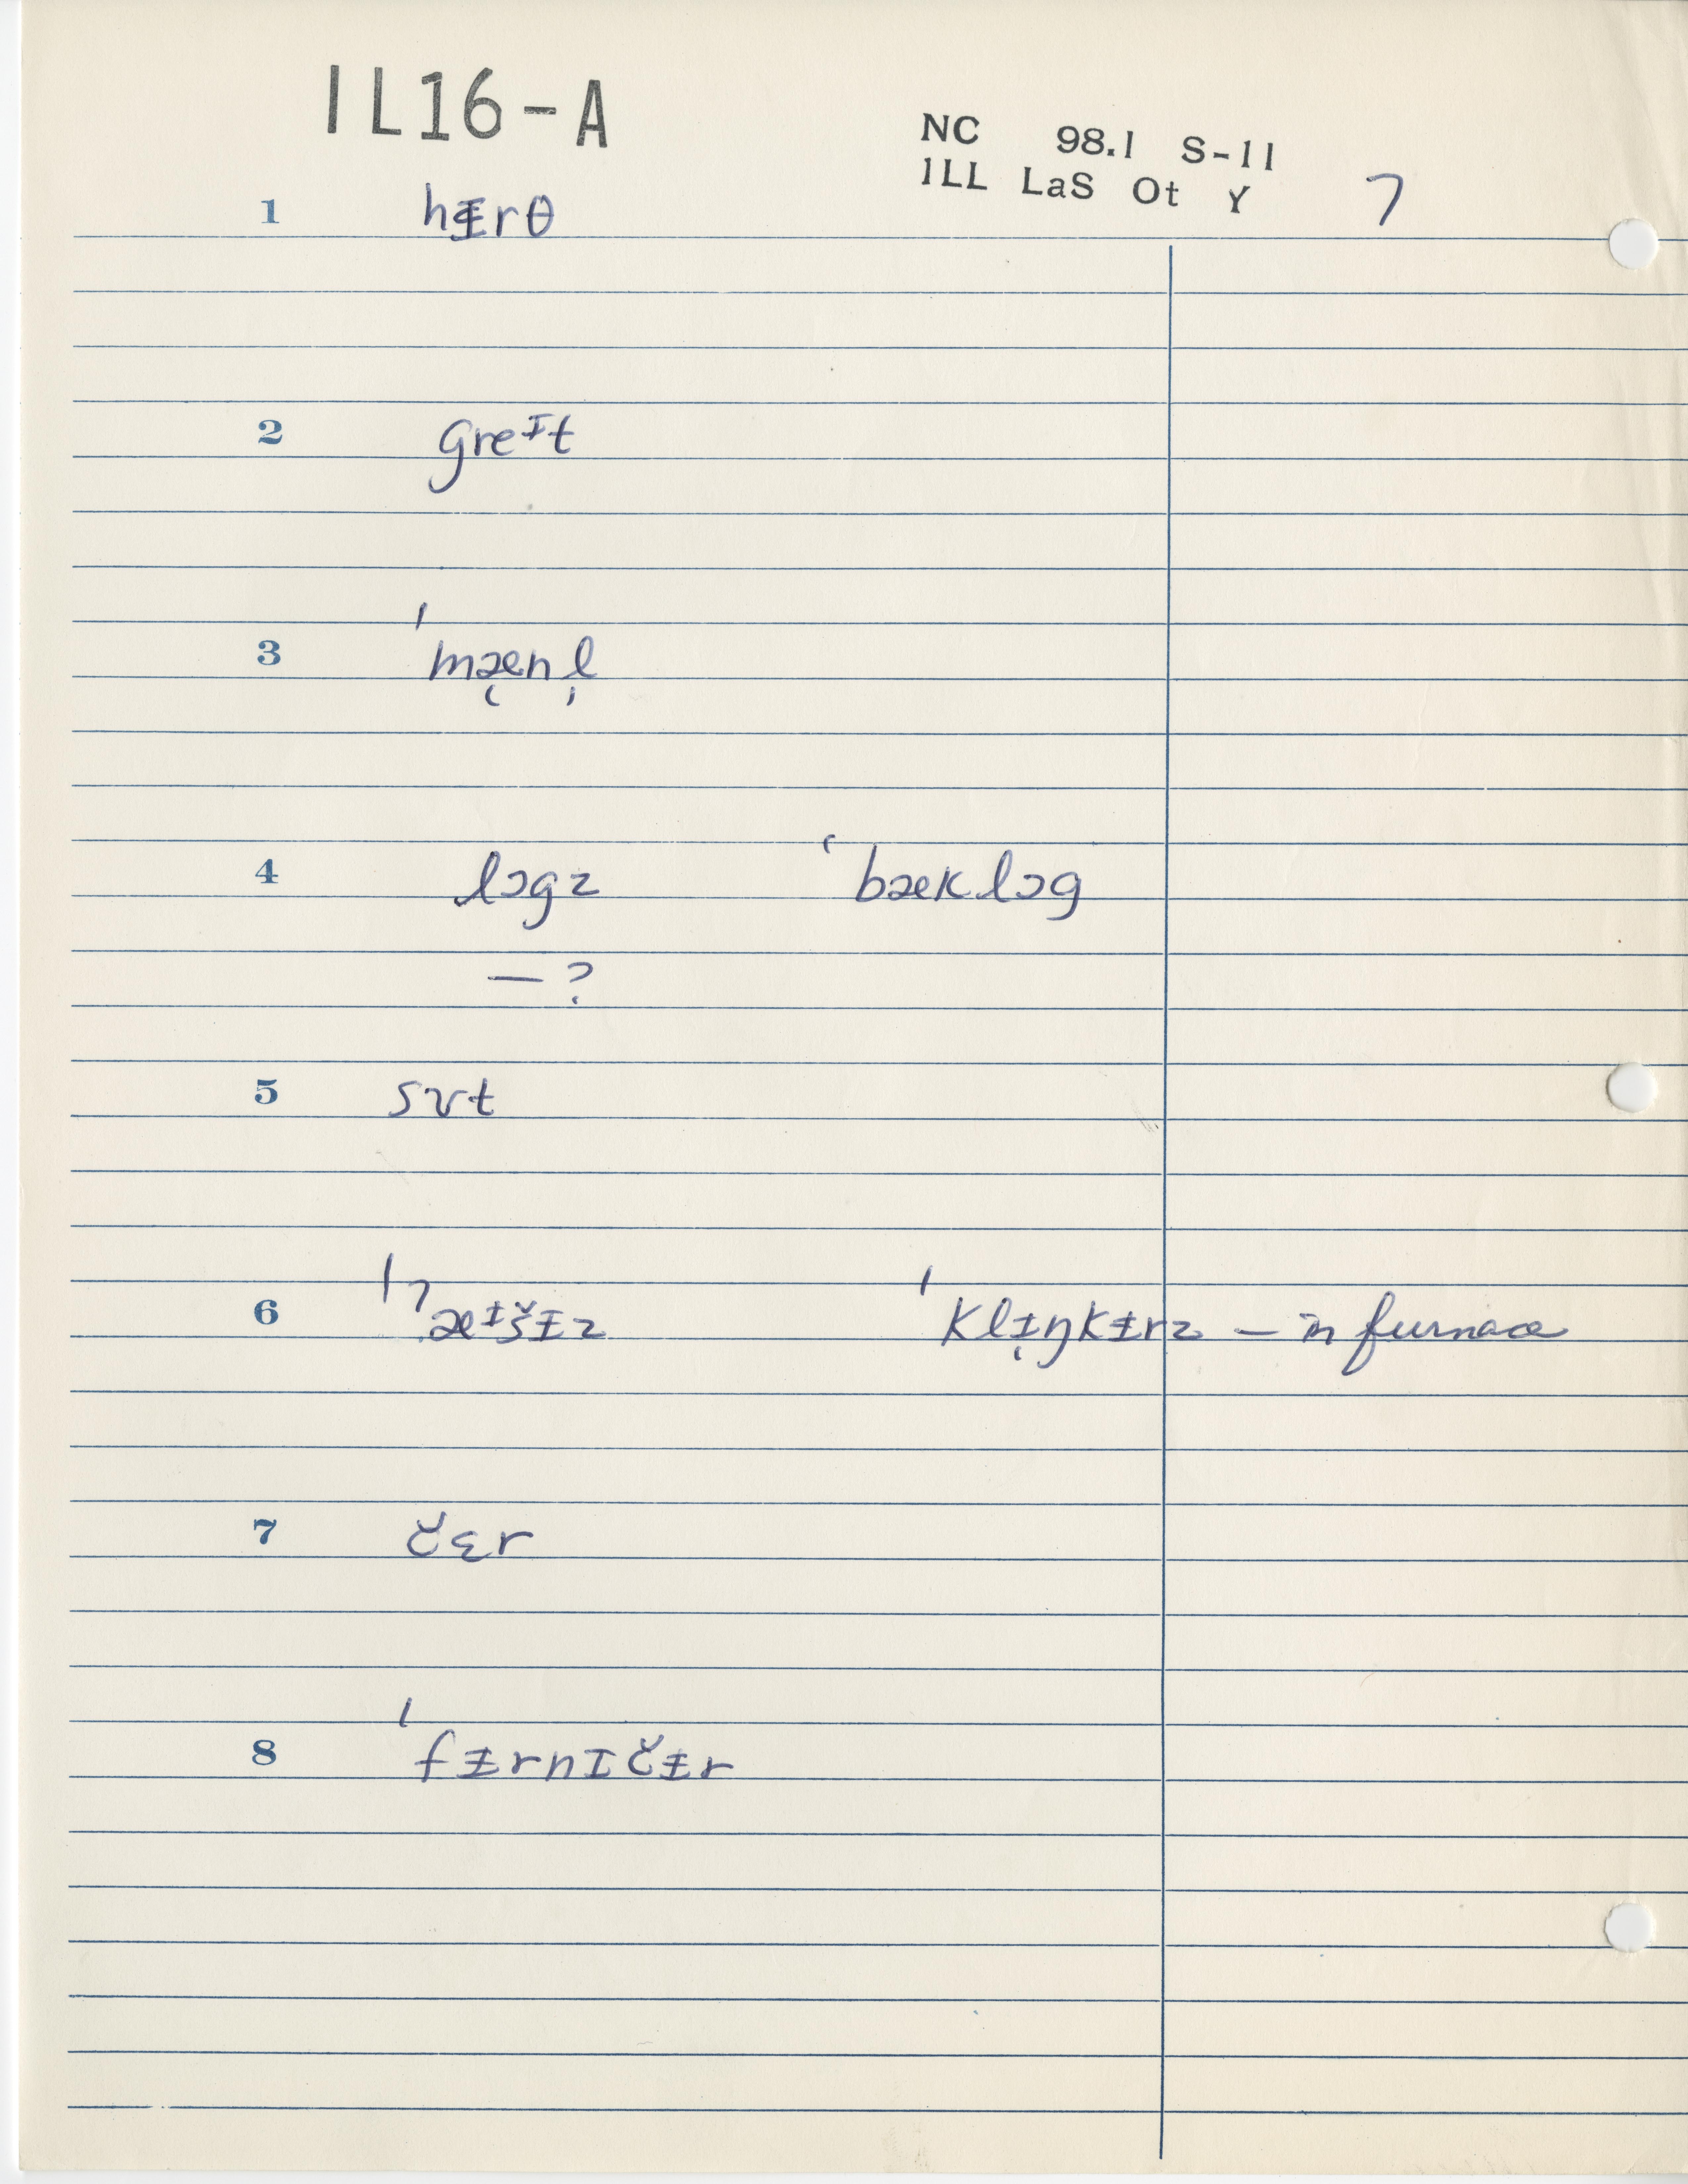 IL16-A
NC 98.1 S-11
ILL LaS Ot Y 7
1 hᵻrθ
2 greᴵt
3 ˈmæ̜nl̩
4 lɔgz ˈbæklɔg
— ?
5 sʊt
6 ˈˀæᴵšᵻz ˈklᵻ̜ŋkᵻrz — in furnace
7 čɛr
8 ˈfᵻrnɪčᵻr